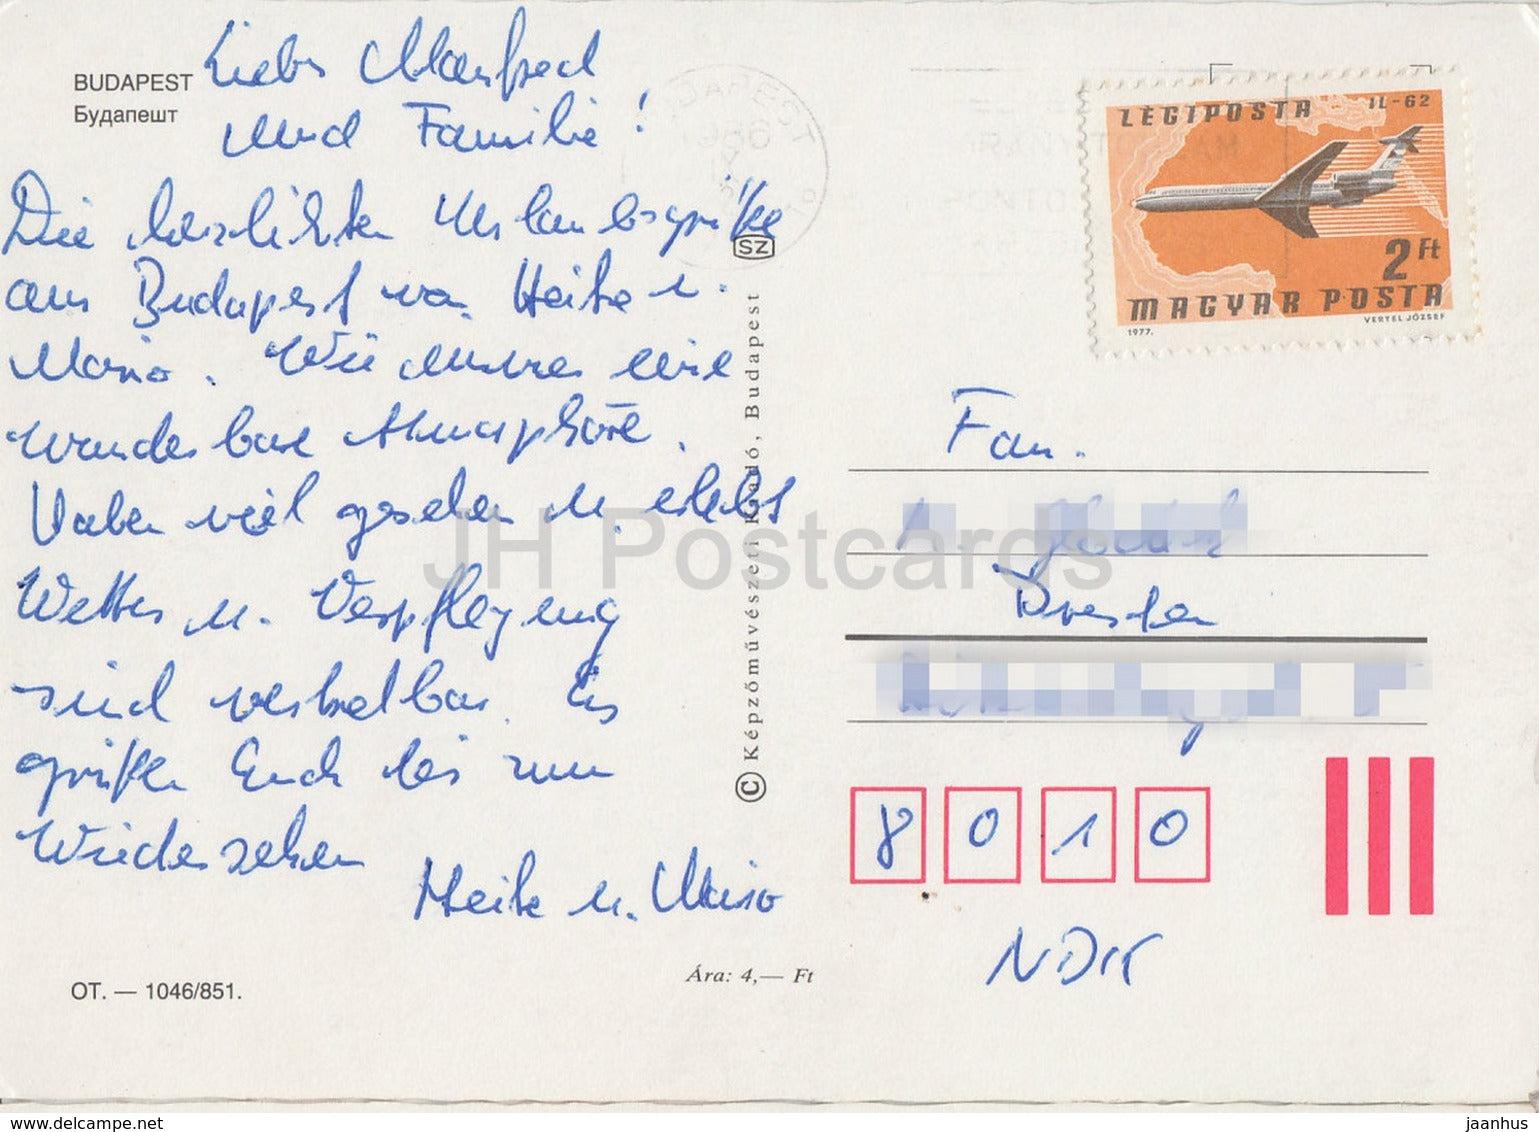 BUDAPEST
Будапешт
Lieber Manfred
und Familie!
Die herzlichsten Urlaubsgrüße
aus Budapest von Heike u.
Mario. Wir
wunderbare Atmosphäre.
Haben viel gesehen u. erlebt
Wetter u. Verpflegung
sind
grüßen Euch bis zum
Wiedersehen
Heike u. Mario
OT. — 1046/851.
Ára: 4,— Ft
SZ
© Képzőművészeti Kiadó, Budapest
LÉGIPOSTA IL-62
2 Ft
MAGYAR POSTA
1977. VERTEL JÓZSEF
Fam.
Dresden
8 0 1 0
NDK
JH Postcards
www.delcampe.net
jaanhus